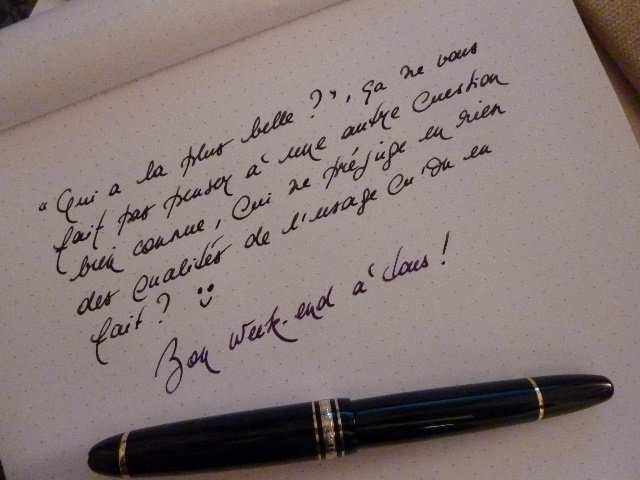 "Qui a la plus belle ?", ça ne vous
fait pas penser à une autre question
bien connue, qui ne préjuge en rien
des qualités de l'usage qu'on en
fait ? :)
Bon week-end à tous !